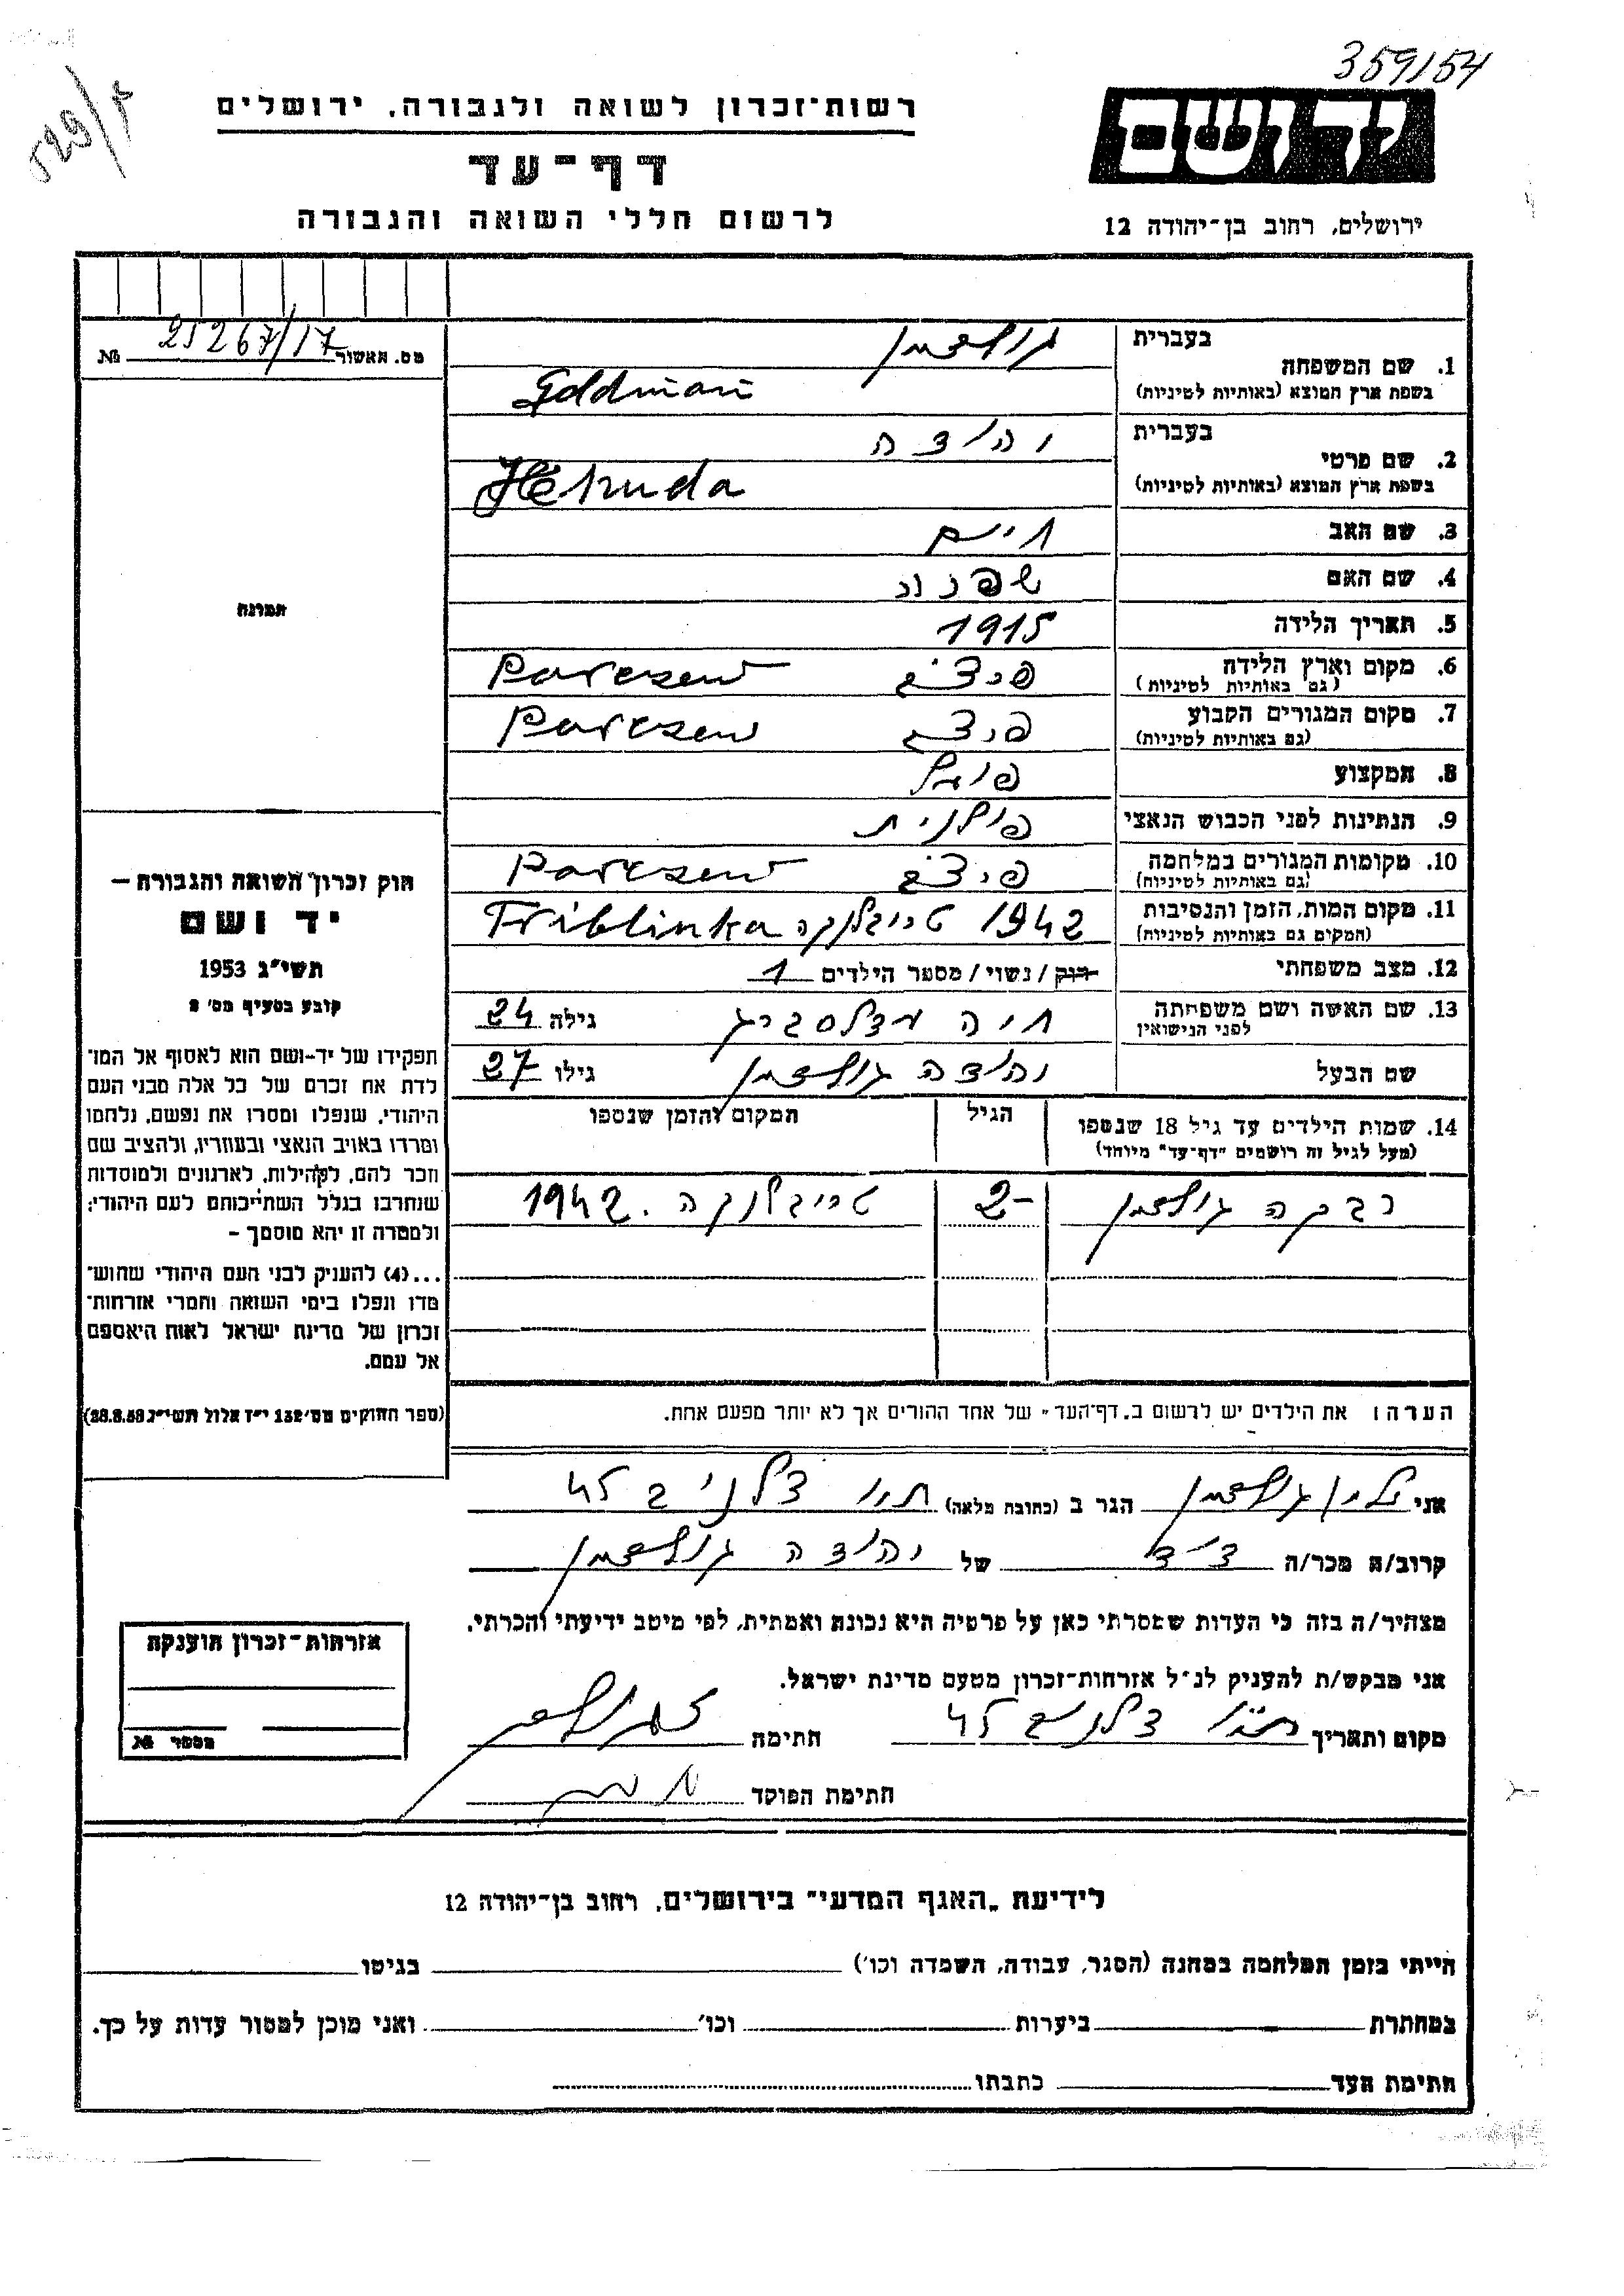 359154
529/ק
רשות־זכרון לשואה ולגבורה, ירושלים
ידושם
דף־עד
לרשום חללי השואה והגבורה
ירושלים, רחוב בן־יהודה 12
מס. האשור 25267/17 №
תמונה
חוק זכרון השואה והגבורה —
יד ושם
תשי״ג 1953
קובע בסעיף מס׳ 2
תפקידו של יד-ושם הוא לאסוף אל המו־
לדת את זכרם של כל אלה מבני העם
היהודי, שנפלו ומסרו את נפשם, נלחמו
ומרדו באויב הנאצי ובעוזריו, ולהציב שם
וזכר להם, לקהילות, לארגונים ולמוסדות
שנחרבו בגלל השתייכותם לעם היהודי;
ולמטרה זו יהא מוסמך –
...(4) להעניק לבני העם היהודי שהוש־
מדו ונפלו בימי השואה והמרי אזרחות־
זכרון של מדינת ישראל לאות היאספם
אל עמם.
(ספר החוקים מס׳ 132 י״ז אלול תשי״ג 28.8.53)
בעברית גולדמן
1. שם המשפחה
בשפת ארץ המוצא (באותיות לטיניות) Goldman
בעברית יהודה
2. שם פרטי
בשפת ארץ המוצא (באותיות לטיניות) Jehuda
3. שם האב חיים
4. שם האם
5. תאריך הלידה 1915
6. מקום וארץ הלידה
(גם באותיות לטיניות) Parczew
7. מקום המגורים הקבוע
(גם באותיות לטיניות) Parczew
8. המקצוע פועל
9. הנתינות לפני הכבוש הנאצי פולנית
10. מקומות המגורים במלחמה
(גם באותיות לטיניות) Parczew
11. מקום המות, הזמן והנסיבות 1942 טריבלנקה Triblinka
(המקום גם באותיות לטיניות)
12. מצב משפחתי רווק / נשוי / מספר הילדים 1
13. שם האשה ושם משפחתה חיה גילה 24
לפני הנישואין
שם הבעל יהודה גולדמן גילו 27
14. שמות הילדים עד גיל 18 שנספו הגיל המקום והזמן שנספו
(מעל לגיל זה רושמים ״דף־עד״ מיוחד)
רבקה גולדמן 2- טריבלנקה 1942.
הערה: את הילדים יש לרשום ב„דף־העד״ של אחד ההורים אך לא יותר מפעם אחת.
אני גולדמן הגר ב (כתובת מלאה)
קרוב/ה מכר/ה דוד של יהודה גולדמן
מצהיר/ה בזה כי העדות שמסרתי כאן על פרטיה היא נכונה ואמתית, לפי מיטב ידיעתי והכרתי.
אני מבקש/ת להעניק לנ״ל אזרחות־זכרון מטעם מדינת ישראל.
מקום ותאריך חתימה
חתימת הפוקד
אזרחות־זכרון הוענקה
מספר №
לידיעת „האגף המדעי״ בירושלים, רחוב בן־יהודה 12
הייתי בזמן המלחמה במחנה (הסגר, עבודה, השמדה וכו׳) בגיטו
במחתרת ביערות וכו׳ ואני מוכן למסור עדות על כך.
חתימת העד כתבתו